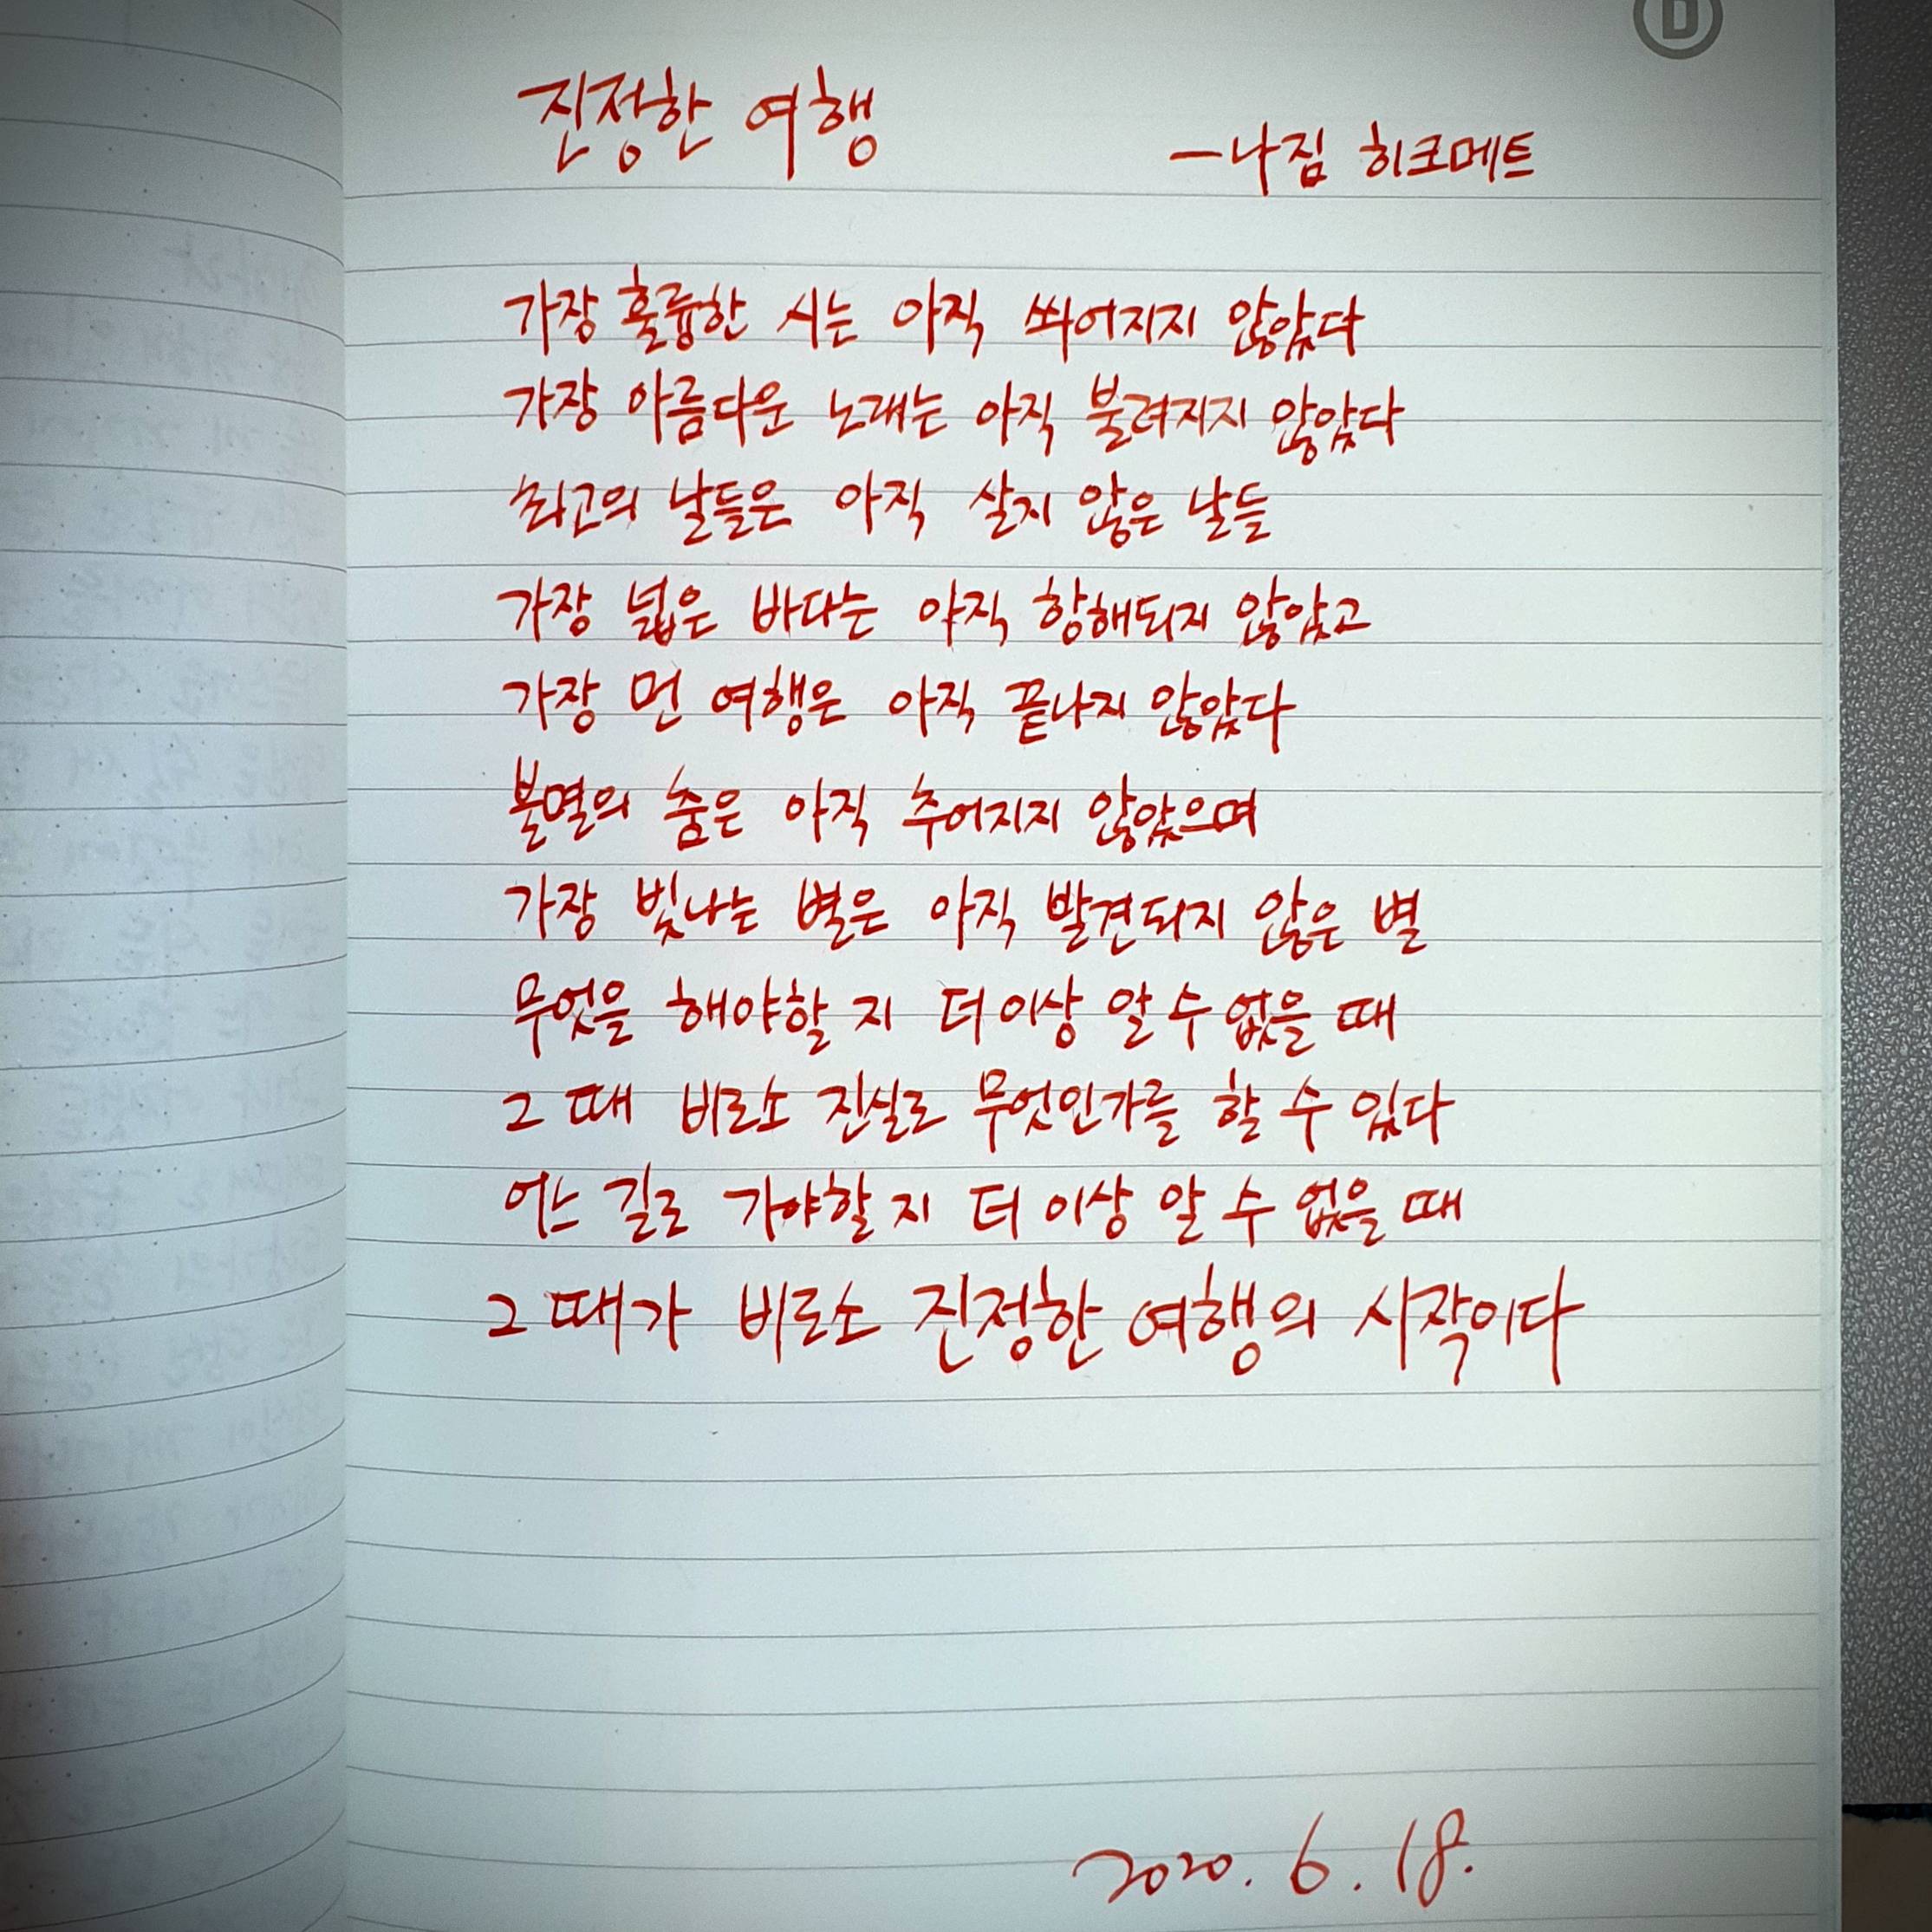 D
진정한 여행
-나짐 히크메트
가장 훌륭한 시는 아직 쓰어지지 않았다
가장 아름다운 노래는 아직 불려지지 않았다
최고의 날들은 아직 살지 않은 날들
가장 넓은 바다는 아직 항해되지 않았고
가장 먼 여행은 아직 끝나지 않았다
불멸의 춤은 아직 추어지지 않았으며
가장 빛나는 별은 아직 발견되지 않은 별
무엇을 해야할 지 더 이상 알 수 없을 때
그 때 비로소 진실로 무엇인가를 할 수 있다
어느 길로 가야할 지 더 이상 알 수 없을 때
그 때가 비로소 진정한 여행의 시작이다
2020. 6. 18.